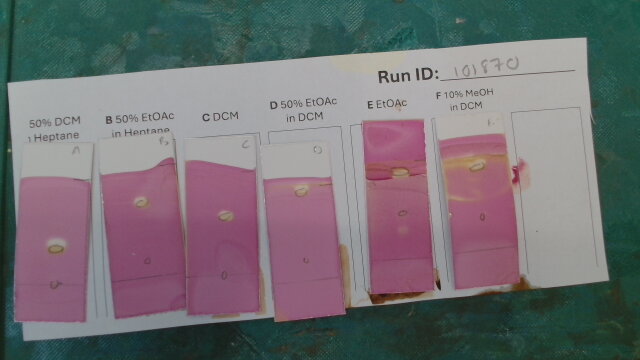 Run ID: 101870
50% DCM
in Heptane
B 50% EtOAc
in Heptane
C DCM
D 50% EtOAc
in DCM
E EtOAc
F 10% MeOH
in DCM
A
B
C
D
F